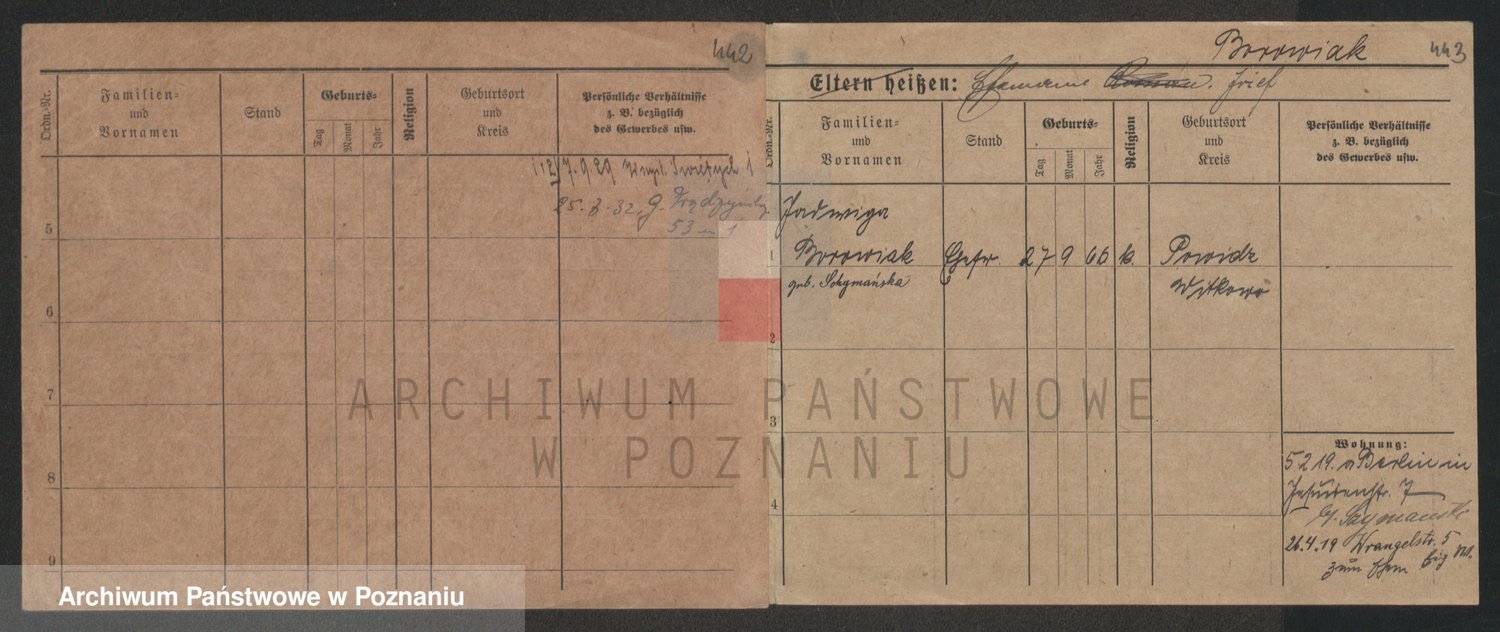 442
Ordn.-Nr.
Familien-
und
Vornamen
Stand
Geburts-
Tag
Monat
Jahr
Religion
Geburtsort
und
Kreis
Persönliche Verhältnisse
z. B. bezüglich
des Gewerbes usw.
7.9.29
25. 32. G.
53 m 1
5
6
7
8
9
Borowiak
443
Eltern heißen: Ehemann Josef
Ordn.-Nr.
Familien-
und
Vornamen
Stand
Geburts-
Tag
Monat
Jahr
Religion
Geburtsort
und
Kreis
Persönliche Verhältnisse
z. B. bezüglich
des Gewerbes usw.
Jadwiga
1 Borowiak Ehefr. 27 9 66 k. Powidz
geb. Schymańska Witkowo
2
3
4
Wohnung:
5 2 19. a Berlin in
Jesuitenstr. 7
Szymanski
26.4.19 Wrangelstr. 5
zum Ehem
ARCHIWUM PAŃSTWOWE
W POZNANIU
Archiwum Państwowe w Poznaniu